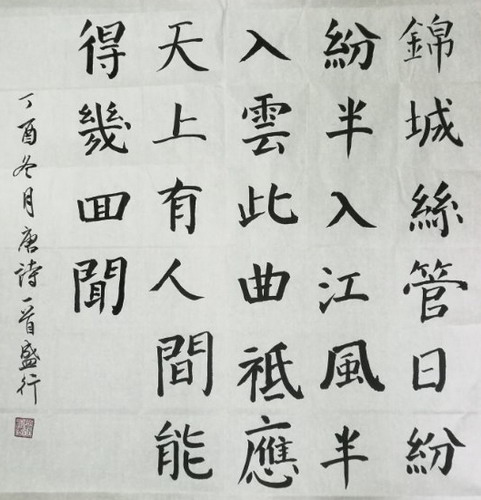 錦城絲管日紛
紛半入江風半
入雲此曲祗應
天上有人間能
得幾回聞
丁酉冬月唐詩一首盛行